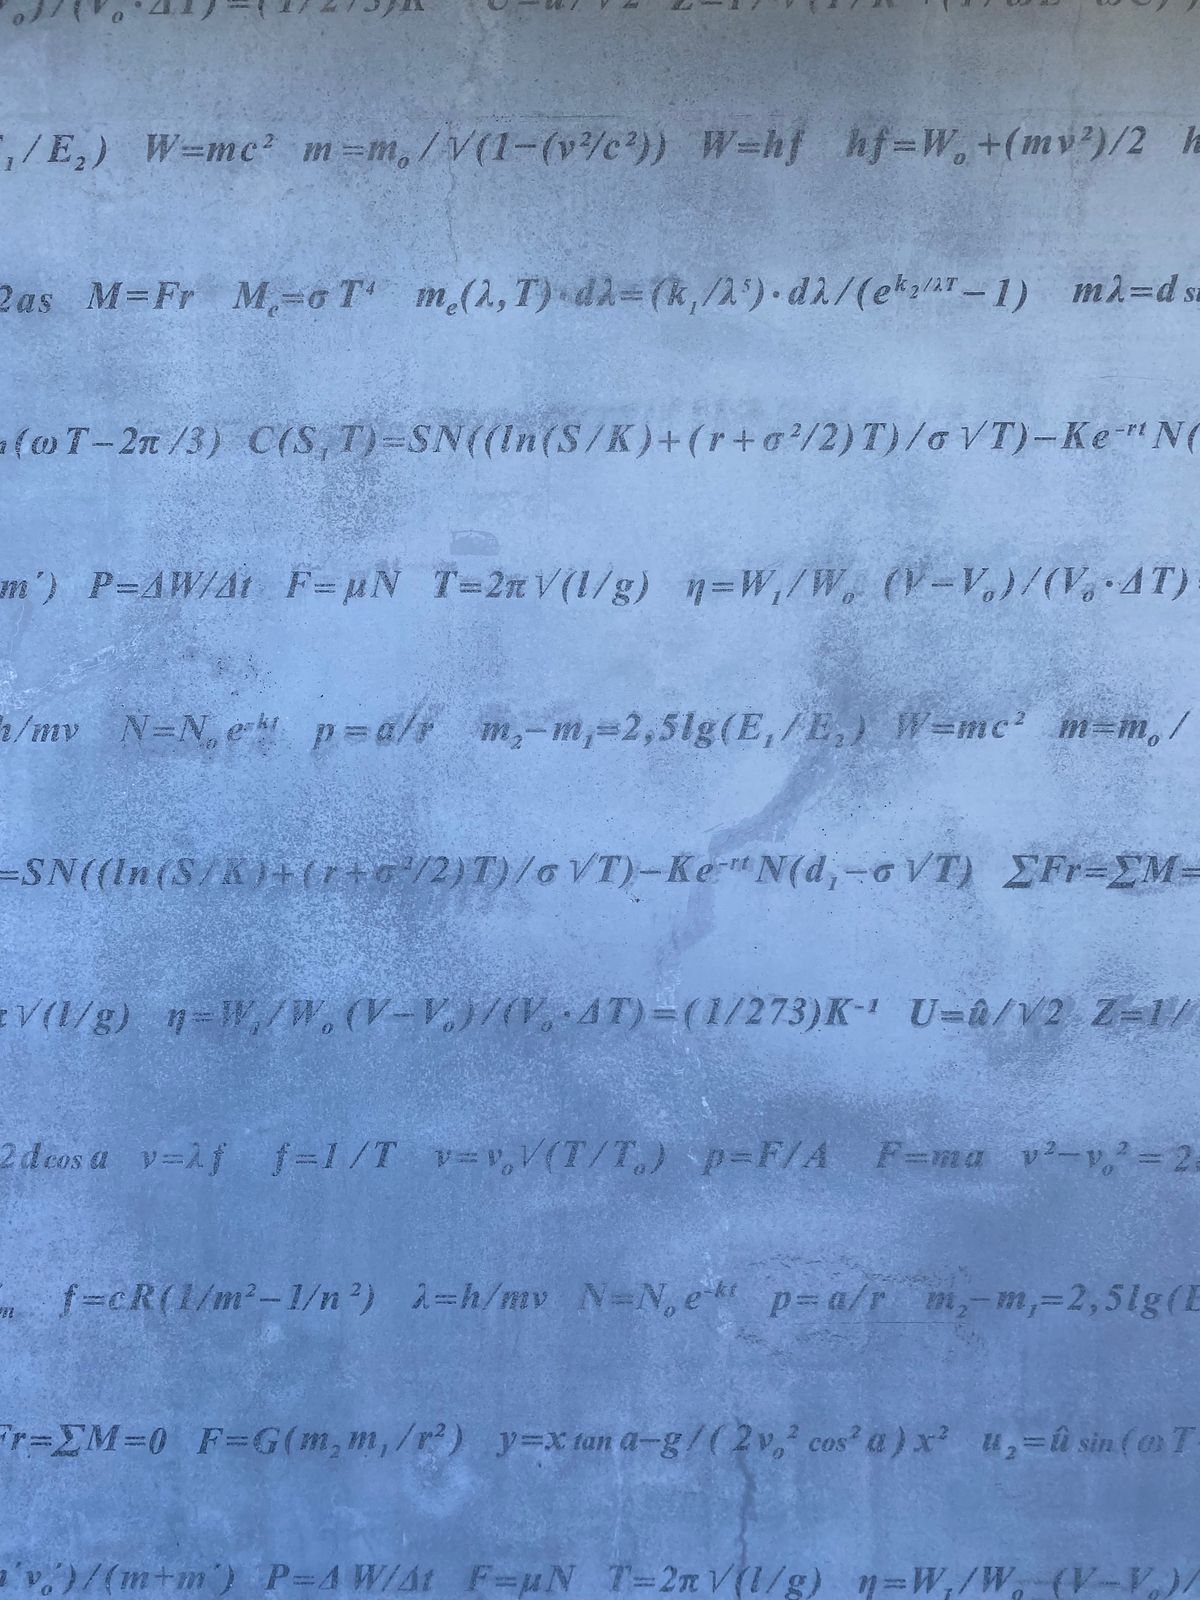 Vₒ)/(Vₒ·ΔT)=(1/273)K U=û/√2 Z=1/√(1/R
₁/E₂) W=mc² m=mₒ/√(1−(v²/c²)) W=hf hf=Wₒ+(mv²)/2 h
2as M=Fr Mₑ=σT⁴ mₑ(λ,T)·dλ=(k₁/λ⁵)·dλ/(e^k₂/λT−1) mλ=d si
(ωT−2π/3) C(S,T)=SN((ln(S/K)+(r+σ²/2)T)/σ√T)−Ke⁻ʳᵗN(
m´) P=ΔW/Δt F=μN T=2π√(l/g) η=W₁/Wₒ (V−Vₒ)/(Vₒ·ΔT)
h/mv N=Nₒe⁻ᵏᵗ p=a/r m₂−m₁=2,5lg(E₁/E₂) W=mc² m=mₒ/
=SN((ln(S/K)+(r+σ²/2)T)/σ√T)−Ke⁻ʳᵗN(d₁−σ√T) ∑Fr=∑M=
π√(l/g) η=W₁/Wₒ (V−Vₒ)/(Vₒ·ΔT)=(1/273)K⁻¹ U=û/√2 Z=1/
2d cos a v=λf f=1/T v=vₒ√(T/Tₒ) p=F/A F=ma v²−vₒ²=2
ₘ f=cR(1/m²−1/n²) λ=h/mv N=Nₒe⁻ᵏᵗ p=a/r m₂−m₁=2,5lg(E
Fr=∑M=0 F=G(m₂m₁/r²) y=x tan a−g/(2vₒ² cos² a)x² u₂=û sin(ωT
´vₒ´)/(m+m´) P=ΔW/Δt F=μN T=2π√(l/g) η=W₁/Wₒ (V−Vₒ)/